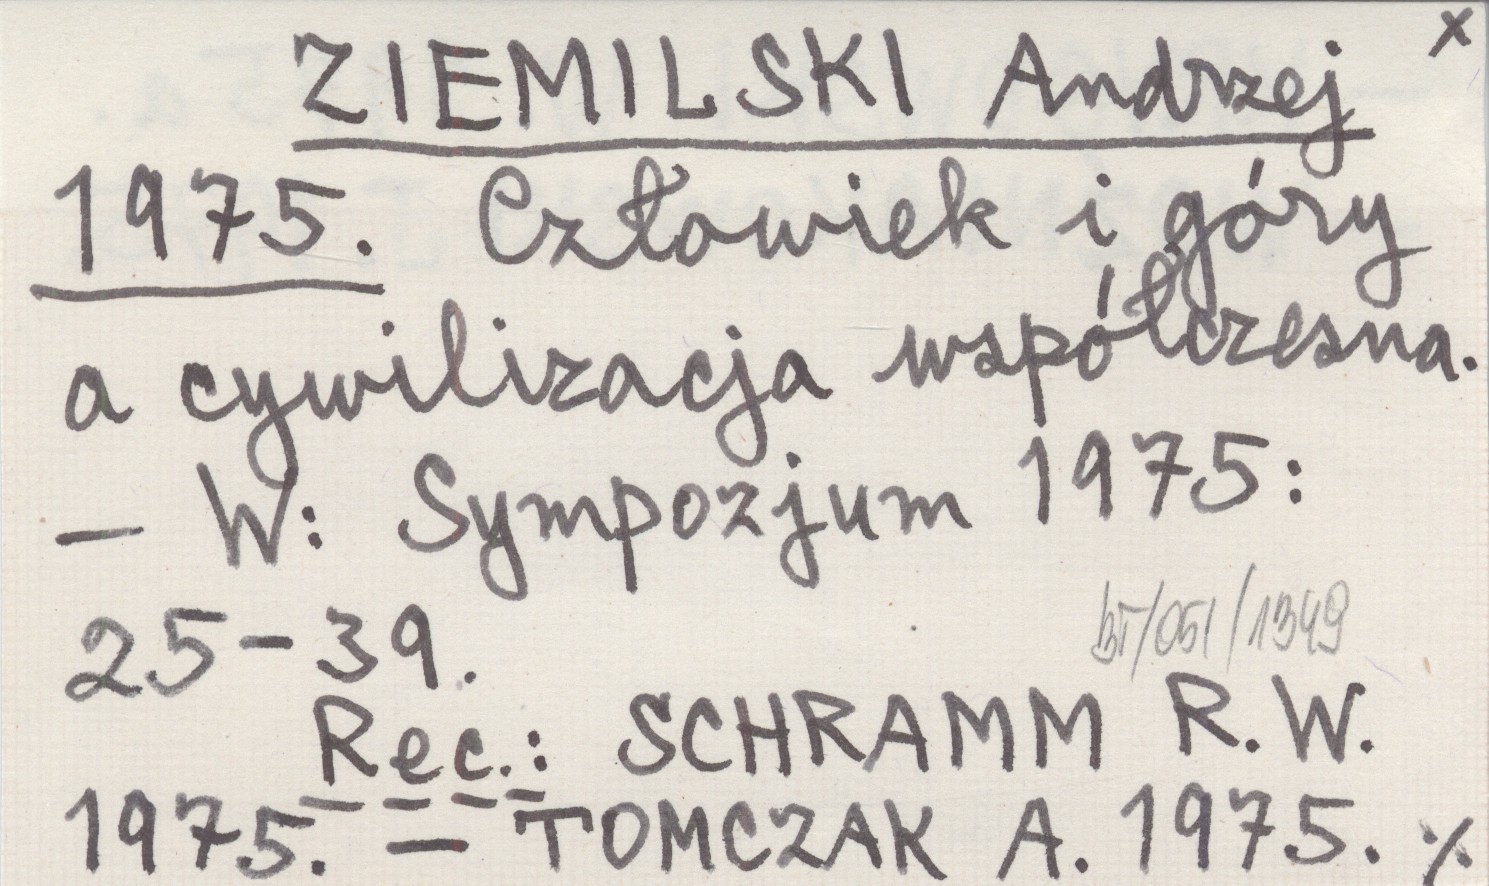 ZIEMILSKI Andrzej x
1975. Człowiek i góry
a cywilizacja współczesna.
– W: Sympozjum 1975:
25–39.
/051/1349
Rec.: SCHRAMM R.W.
1975. – TOMCZAK A. 1975. ./.